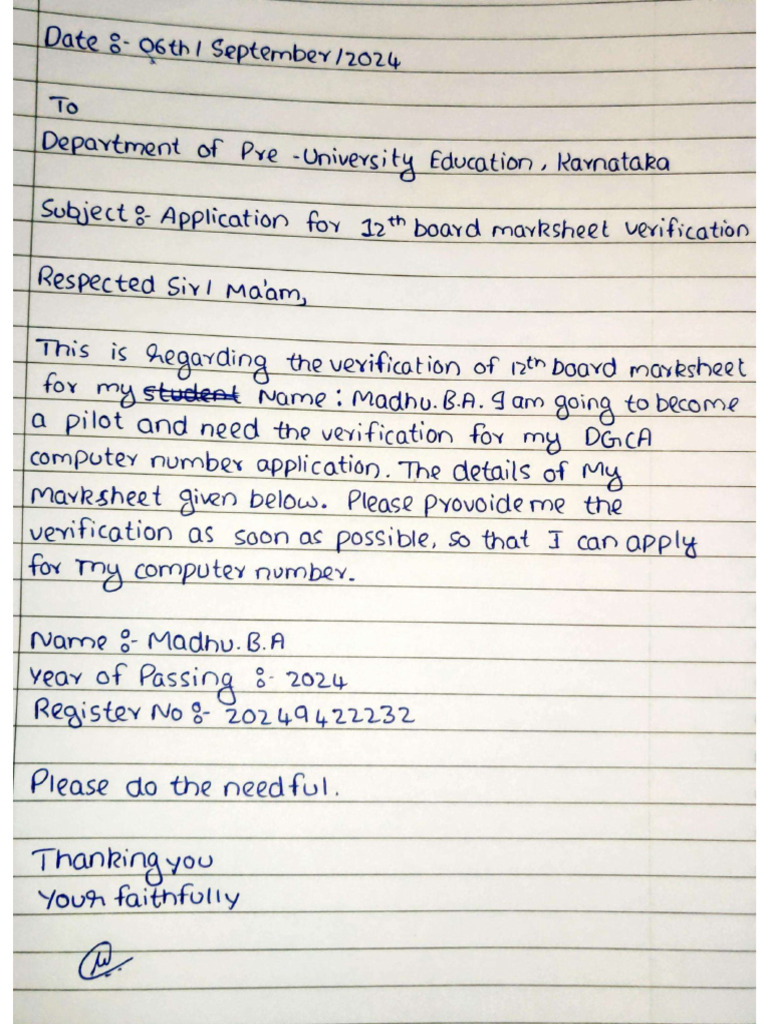 Date :- 06th / September / 2024
To
Department of Pre -University Education, Karnataka
Subject :- Application for 12th board marksheet verification
Respected Sir / Ma'am,
This is Regarding the verification of 12th board marksheet
for my student Name : Madhu.B.A. I am going to become
a pilot and need the verification for my DGCA
computer number application. The details of My
marksheet given below. Please provoide me the
verification as soon as possible, so that I can apply
for my computer number.
Name :- Madhu.B.A
Year of Passing :- 2024
Register No :- 20249422232
Please do the needful.
Thanking you
Your faithfully